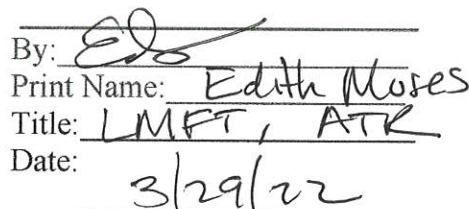 By:
Print Name: Edith Moses
Title: LMFT, ATR
Date:
3/29/22